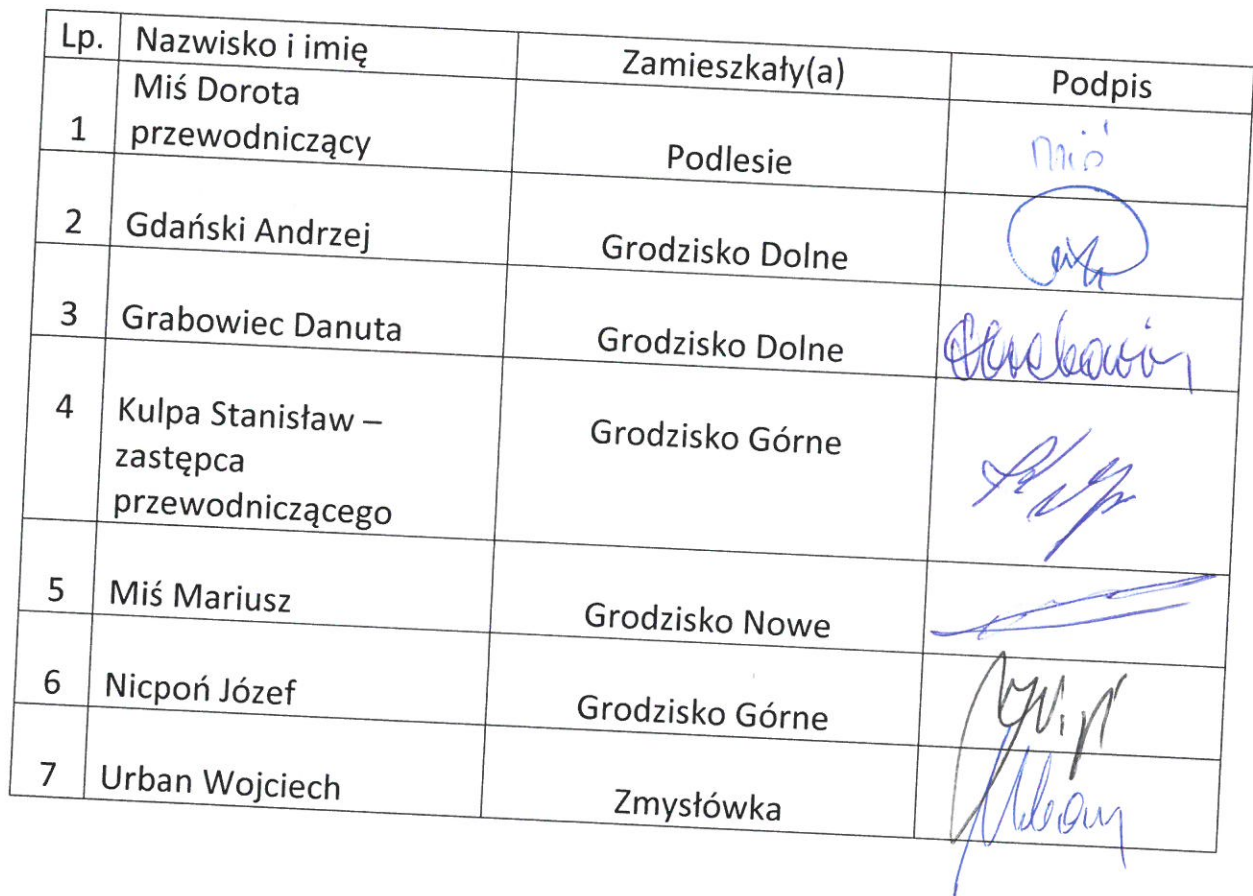 Lp. Nazwisko i imię Zamieszkały(a) Podpis
Miś Dorota
1 przewodniczący Podlesie Miś
2 Gdański Andrzej Grodzisko Dolne
3 Grabowiec Danuta Grodzisko Dolne
4 Kulpa Stanisław – Grodzisko Górne
zastępca
przewodniczącego
5 Miś Mariusz Grodzisko Nowe
6 Nicpoń Józef Grodzisko Górne
7 Urban Wojciech Zmysłówka